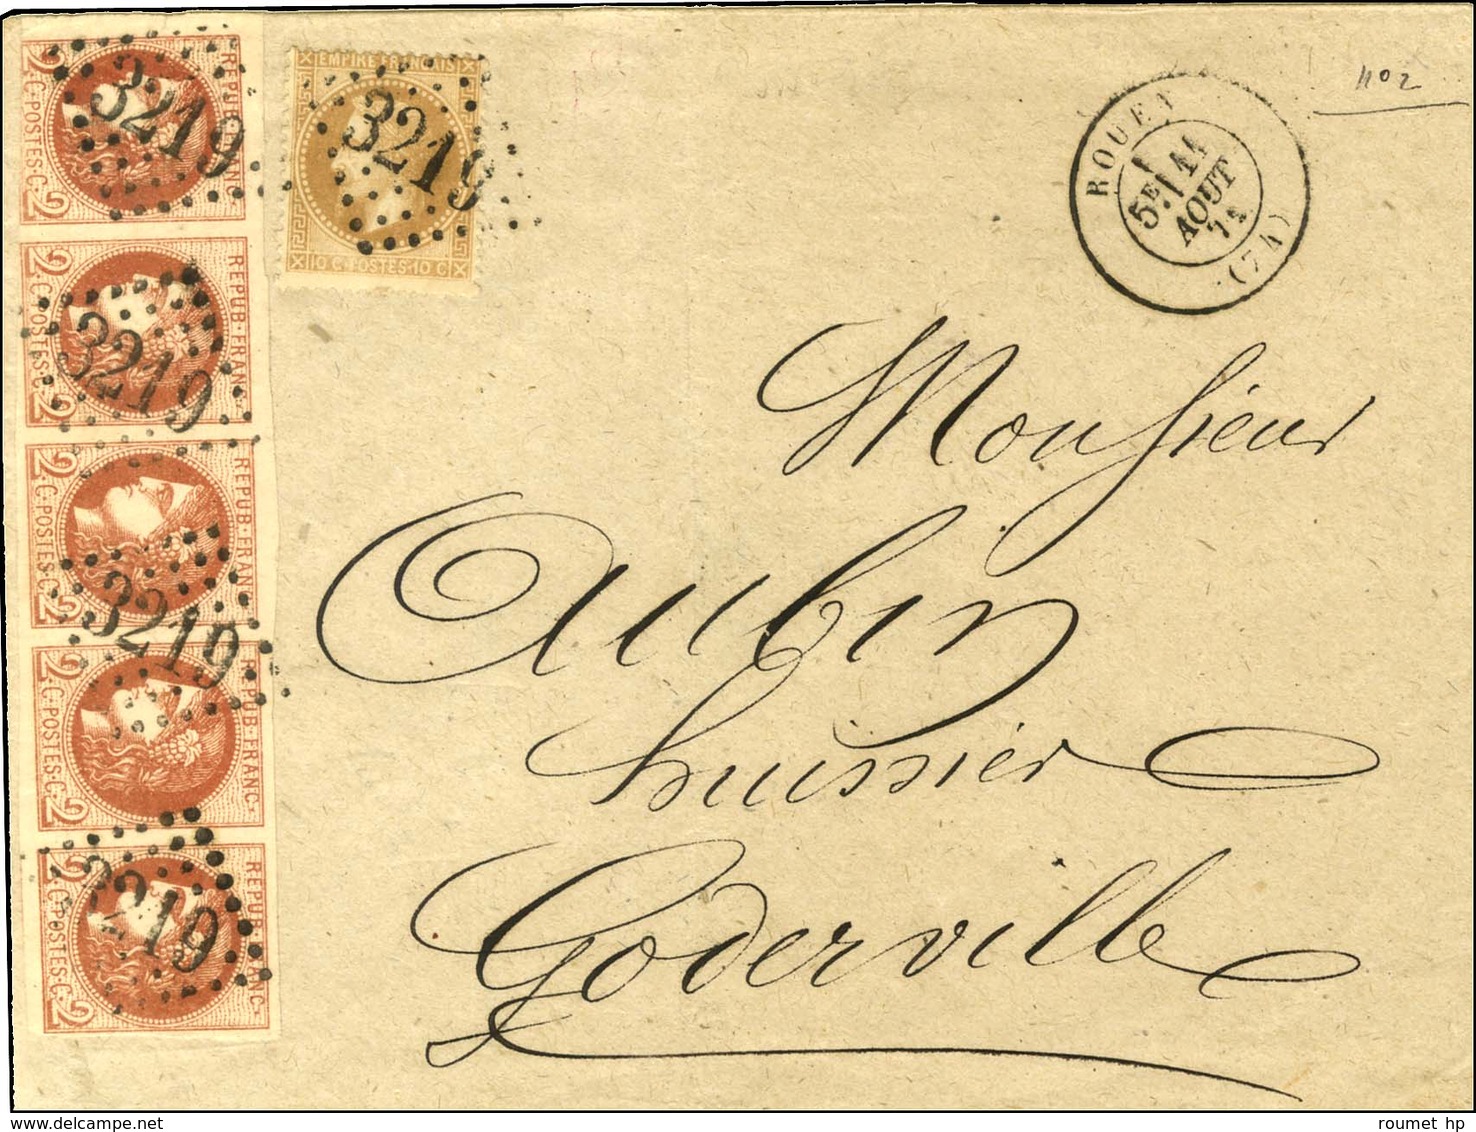 REPUB·FRANC·
2·C·POSTES·C·2
3219
EMPIRE FRANÇAIS
10 C·POSTES·10 C
3219
REPUB·FRANC·
2·C·POSTES·C·2
3219
REPUB·FRANC·
2·C·POSTES·C·2
3219
REPUB·FRANC·
2·C·POSTES·C·2
REPUB·FRANC·
2·C·POSTES·C·2
3219
ROUEN
5E 11
AOUT
71
(74)
no 2
Monsieur
Aubin
huissier
Goderville
roumet hp